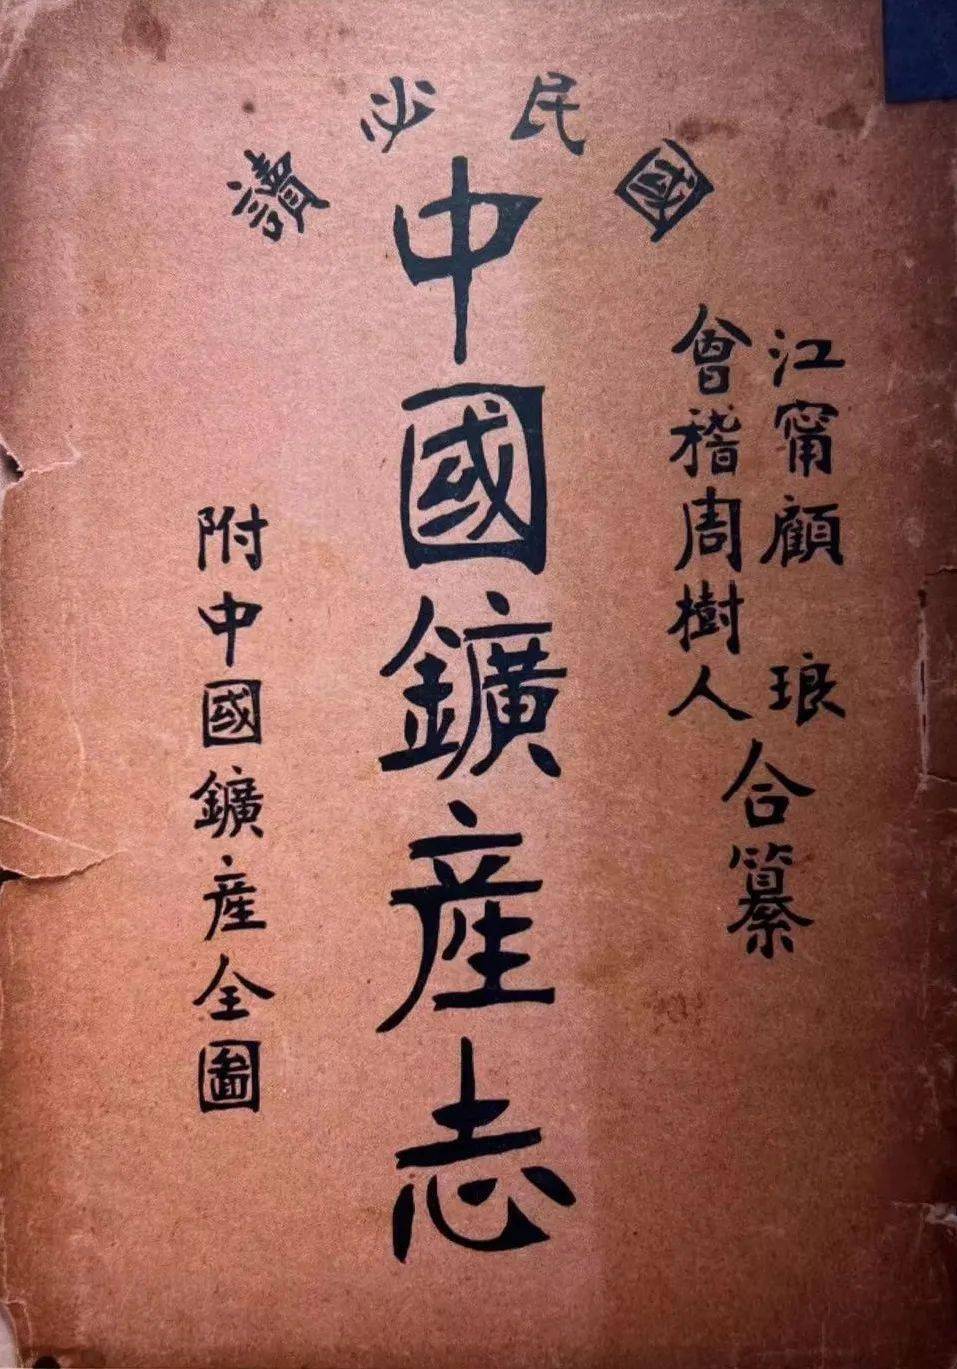 國民必讀
江甯顧 琅
會稽周樹人
合纂
中國鑛產志
附中國鑛產全圖